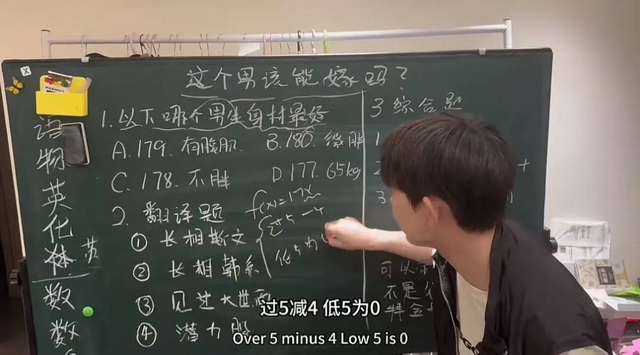 这个男该能嫁吗?
语
物
英
化
体
英
数
数
1.以下哪个男生身材最好
A.179.有腹肌
B.180.微胖
C.178.不胖
D.177.65kg
2.翻译题
① 长相斯文
② 长相韩系
③ 见过大世面
④ 潜力股
f(x)=17x
过5-4
低5为
3综合题
1
2
3
+
可以
不是
过5减4 低5为0
Over 5 minus 4 Low 5 is 0